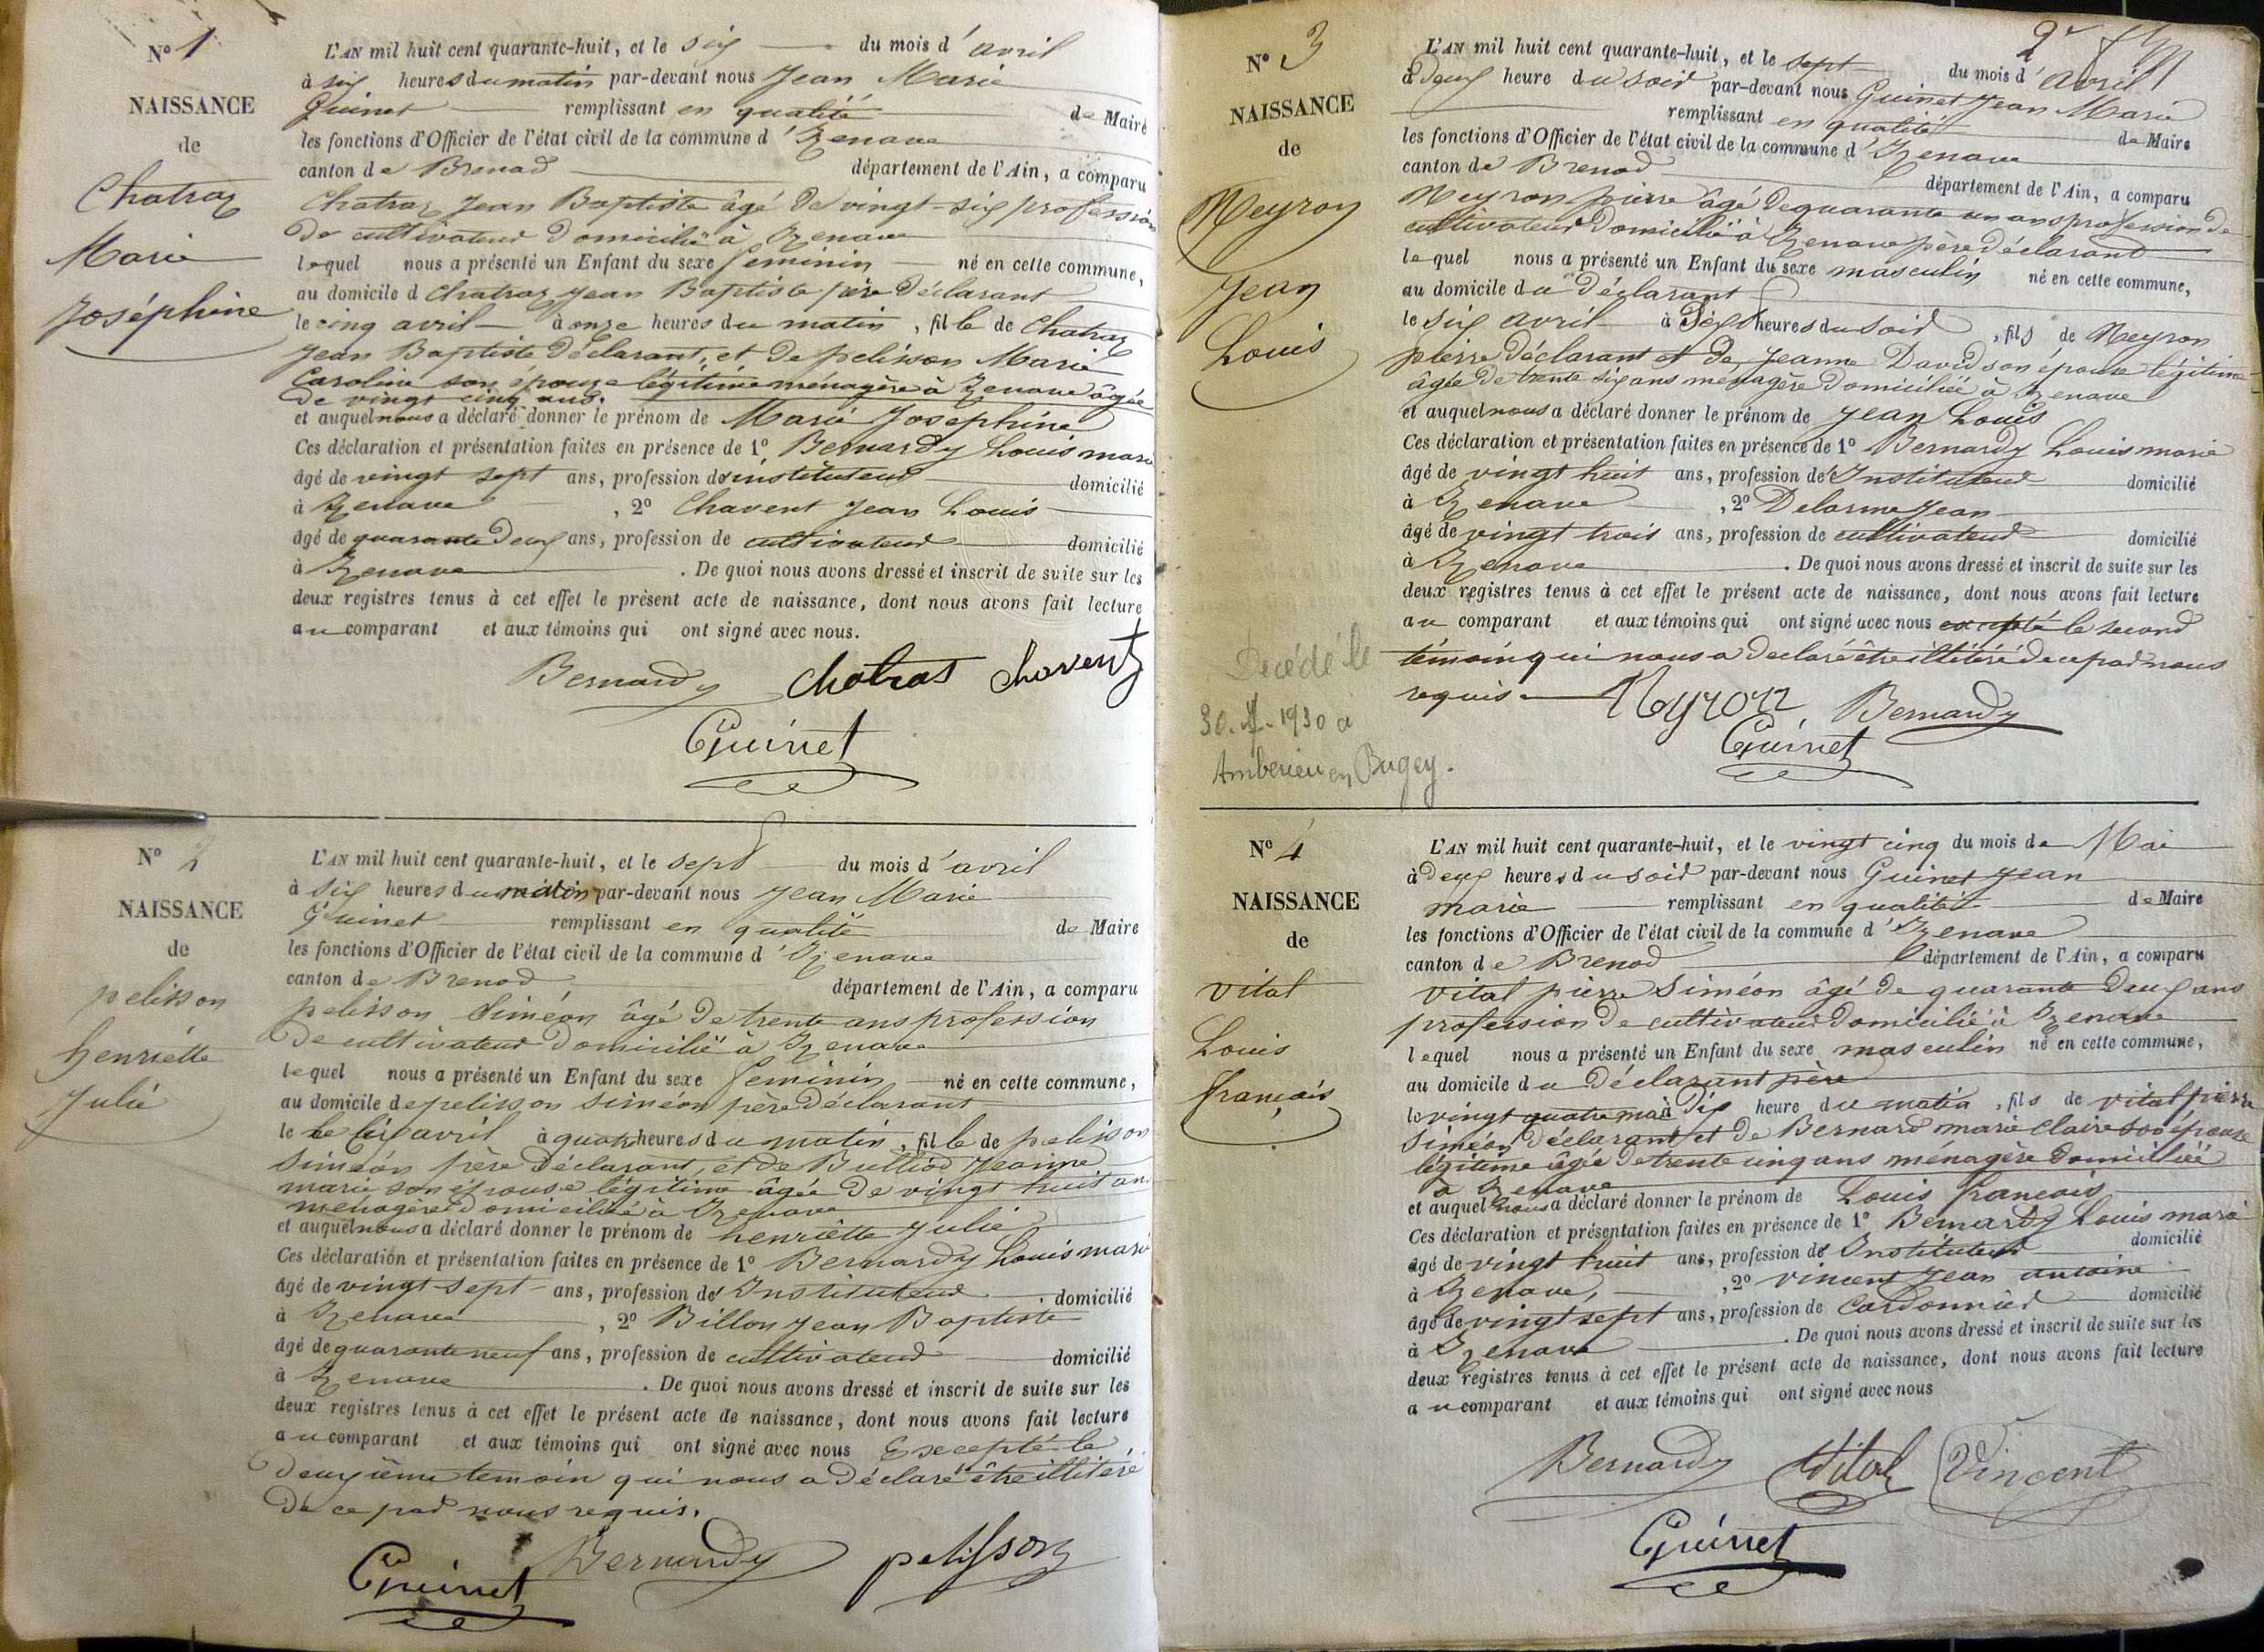 N° 1
NAISSANCE
de
Chatraz
Marie
Joséphine
L'AN mil huit cent quarante-huit, et le six du mois d'avril
à six heures du matin par-devant nous Jean Marie
Guinet remplissant en qualité de Maire
les fonctions d'Officier de l'état civil de la commune d'Izenave
canton de Brenod département de l'Ain, a comparu
Chatraz Jean Baptiste âgé de vingt-six profession
de cultivateur domicilié à Izenave
lequel nous a présenté un Enfant du sexe féminin né en cette commune,
au domicile d Chatraz Jean Baptiste père déclarant
le cinq avril à onze heures du matin, fille de Chatraz
Jean Baptiste déclarant, et de pelisson Marie
Caroline son épouse légitime ménagère à Izenave âgée
de vingt cinq ans.
et auquel nous a déclaré donner le prénom de Marie Josephine
Ces déclaration et présentation faites en présence de 1° Bernardy Louis marie
âgé de vingt sept ans, profession d'instituteur domicilié
à Izenave, 2° Chavent Jean Louis
âgé de quarante deux ans, profession de cultivateur domicilié
à Izenave. De quoi nous avons dressé et inscrit de suite sur les
deux registres tenus à cet effet le présent acte de naissance, dont nous avons fait lecture
au comparant et aux témoins qui ont signé avec nous.
Bernardy chatras chavent
Guinet
N° 2
NAISSANCE
de
pelisson
henriette
Julie
L'AN mil huit cent quarante-huit, et le sept du mois d'avril
à six heures du matin par-devant nous Jean Marie
Guinet remplissant en qualité de Maire
les fonctions d'Officier de l'état civil de la commune d'Izenave
canton de Brenod département de l'Ain, a comparu
pelisson Siméon âgé de trente ans profession
de cultivateur domicilié à Izenave
lequel nous a présenté un Enfant du sexe féminin né en cette commune,
au domicile de pelisson siméon père déclarant
le le six avril à quatre heures du matin, fille de pelisson
Siméon père déclarant, et de Bulliod Jeanne
marie son épouse légitime âgée de vingt huit ans
ménagère domiciliée à Izenave
et auquel nous a déclaré donner le prénom de henriette Julie
Ces déclaration et présentation faites en présence de 1° Bernardy Louis marie
âgé de vingt-sept ans, profession d'Instituteur domicilié
à Izenave, 2° Billon Jean Baptiste
âgé de quarante neuf ans, profession de cultivateur domicilié
à Izenave. De quoi nous avons dressé et inscrit de suite sur les
deux registres tenus à cet effet le présent acte de naissance, dont nous avons fait lecture
au comparant et aux témoins qui ont signé avec nous Excepté le
deuxième temoin qui nous a déclaré être illitéré
de ce par nous requis.
Guinet Bernardy pelisson
2e
N° 3
NAISSANCE
de
Neyron
Jean
Louis
Decédé le
30.7.1930 a
Amberieu en Bugey.
L'AN mil huit cent quarante-huit, et le sept du mois d'avril
à deux heure du soir par-devant nous Guinet Jean Marie
remplissant en qualité de Maire
les fonctions d'Officier de l'état civil de la commune d'Izenave
canton de Brenod département de l'Ain, a comparu
Neyron pierre âgé de quarante un ans profession de
cultivateur domicilié à Izenave père déclarant
lequel nous a présenté un Enfant du sexe masculin né en cette commune,
au domicile du déclarant
le six avril à sept heures du soir, fils de Neyron
pierre déclarant et de Jeanne David son épouse légitime
âgée de trente six ans ménagère domiciliée à Izenave
et auquel nous a déclaré donner le prénom de Jean Louis
Ces déclaration et présentation faites en présence de 1° Bernardy Louis marie
âgé de vingt huit ans, profession d'Instituteur domicilié
à Izenave, 2° Delorme Jean
âgé de vingt trois ans, profession de cultivateur domicilié
à Izenave. De quoi nous avons dressé et inscrit de suite sur les
deux registres tenus à cet effet le présent acte de naissance, dont nous avons fait lecture
au comparant et aux témoins qui ont signé avec nous excepté le second
témoin qui nous a déclaré être illitéré de ce par nous
requis. Neyron Bernardy
Guinet
N° 4
NAISSANCE
de
vital
Louis
françois
L'AN mil huit cent quarante-huit, et le vingt cinq du mois de Mai
à deux heures du soir par-devant nous Guinet Jean
marie remplissant en qualité de Maire
les fonctions d'Officier de l'état civil de la commune d'Izenave
canton de Brenod département de l'Ain, a comparu
vital pierre Siméon âgé de quarante deux ans
profession de cultivateur domicilié à Izenave
lequel nous a présenté un Enfant du sexe masculin né en cette commune,
au domicile du déclarant père
le vingt quatre mai à dix heure du matin, fils de vital pierre
Siméon déclarant et de Bernard marie claire son épouse
légitime âgée de trente cinq ans ménagère domiciliée
à Izenave
et auquel nous a déclaré donner le prénom de Louis francois
Ces déclaration et présentation faites en présence de 1° Bernardy Louis marie
âgé de vingt huit ans, profession d'Instituteur domicilié
à Izenave, 2° vincent Jean antoine
âgé de vingt sept ans, profession de Cordonnier domicilié
à Izenave. De quoi nous avons dressé et inscrit de suite sur les
deux registres tenus à cet effet le présent acte de naissance, dont nous avons fait lecture
au comparant et aux témoins qui ont signé avec nous
Bernardy Vital Vincent
Guinet